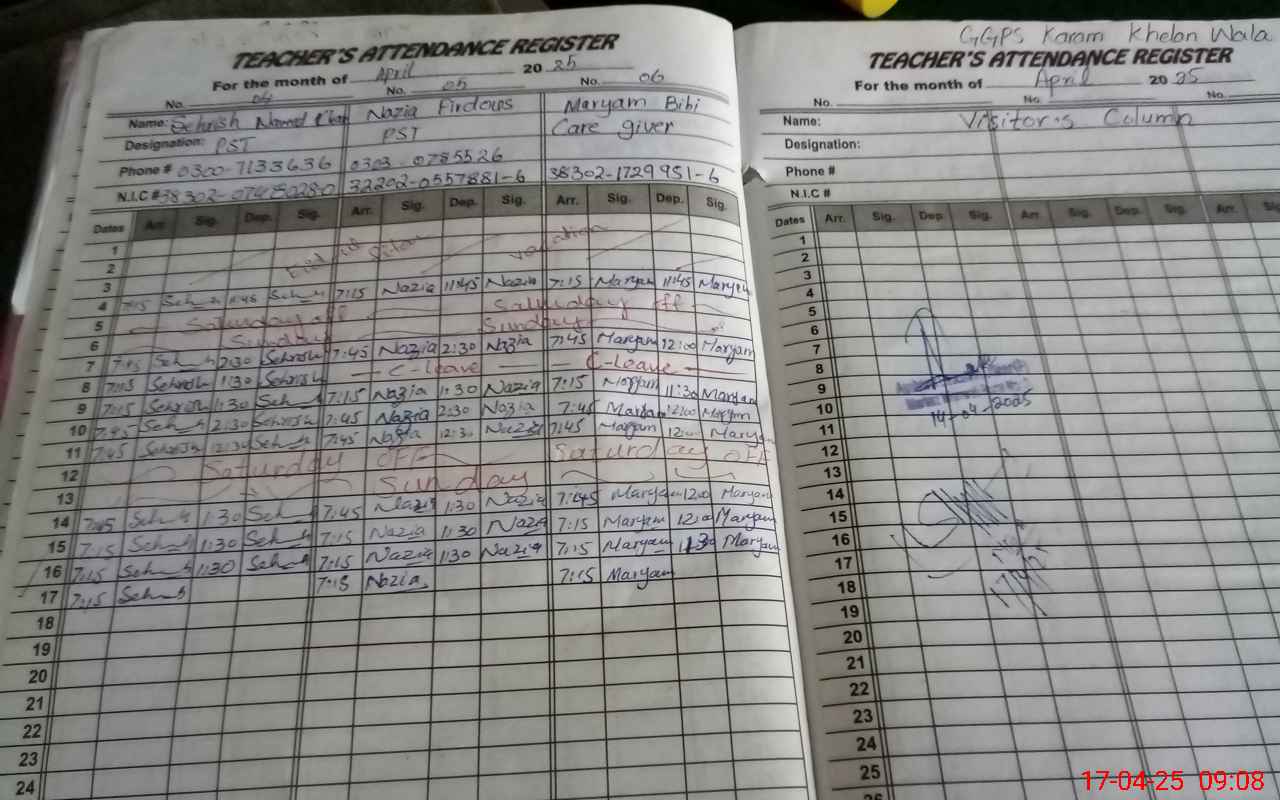 TEACHER'S ATTENDANCE REGISTER
For the month of April 2025
No. 04 No. 05 No. 06
Name: Sehrish Nazia Firdous Maryam Bibi
Designation: PST PST Care giver
Phone # 0300-7133636 0303-0785526
N.I.C # 32202-0557881-6 38302-1729951-6
Dates Arr. Sig. Dep. Sig. Arr. Sig. Dep. Sig. Arr. Sig. Dep. Sig.
1
2 vacation
3
4 7:15 11:45 7:15 Nazia 11:45 Nazia 7:15 Maryam 11:45 Maryam
5 Saturday off Saturday off
6 Sunday Sunday
7 7:45 2:30 Sehrish 7:45 Nazia 2:30 Nazia 7:45 Maryam 12:00 Maryam
8 7:15 1:30 Sehrish C-Leave C-Leave
9 7:15 Sehrish 1:30 7:15 Nazia 1:30 Nazia 7:15 Maryam 11:30 Maryam
10 7:45 2:30 Sehrish 7:45 Nazia 2:30 Nazia 7:45 Maryam 12:00 Maryam
11 7:45 Sehrish 12:30 7:45 Nazia 12:30 Nazia 7:45 Maryam 12:00 Maryam
12 Saturday OFF Saturday OFF
13 Sunday
14 7:45 1:30 7:45 Nazia 1:30 Nazia 7:45 Maryam 12:00 Maryam
15 7:15 1:30 7:15 Nazia 1:30 Nazia 7:15 Maryam 12:00 Maryam
16 7:15 1:30 7:15 Nazia 1:30 Nazia 7:15 Maryam 11:30 Maryam
17 7:15 7:15 Nazia 7:15 Maryam
18
19
20
21
22
23
24
GGPS Karam Khelan Wala
TEACHER'S ATTENDANCE REGISTER
For the month of April 2025
No. No. No.
Name: Visitor's Column
Designation:
Phone #
N.I.C #
Dates Arr. Sig. Dep. Sig. Arr. Sig. Dep. Sig. Arr.
1
2
3
4
5
6
7
8
9
10 14-04-2025
11
12
13
14
15
16
17
18
19
20
21
22
23
24
25
26
17-04-25 09:08